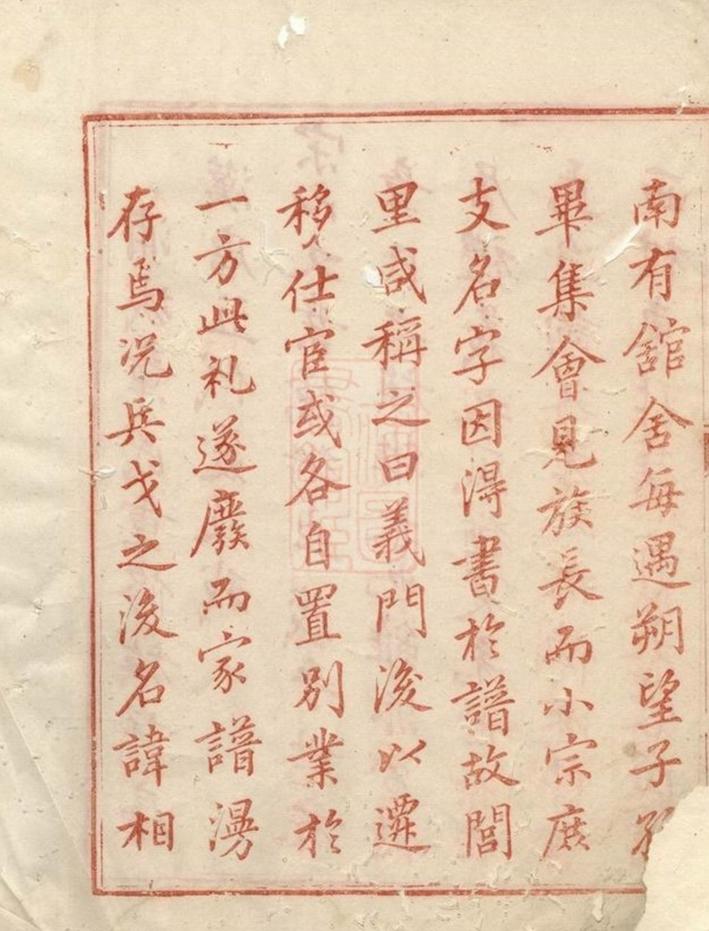 南有舘舍每遇朔望子孫
畢集會見族長而小宗庶
支名字因淂書於譜故閭
里咸稱之曰義門後以遷
移仕宦或各自置别業於
一方此礼遂廢而家譜漫
存焉况兵戈之後名諱相